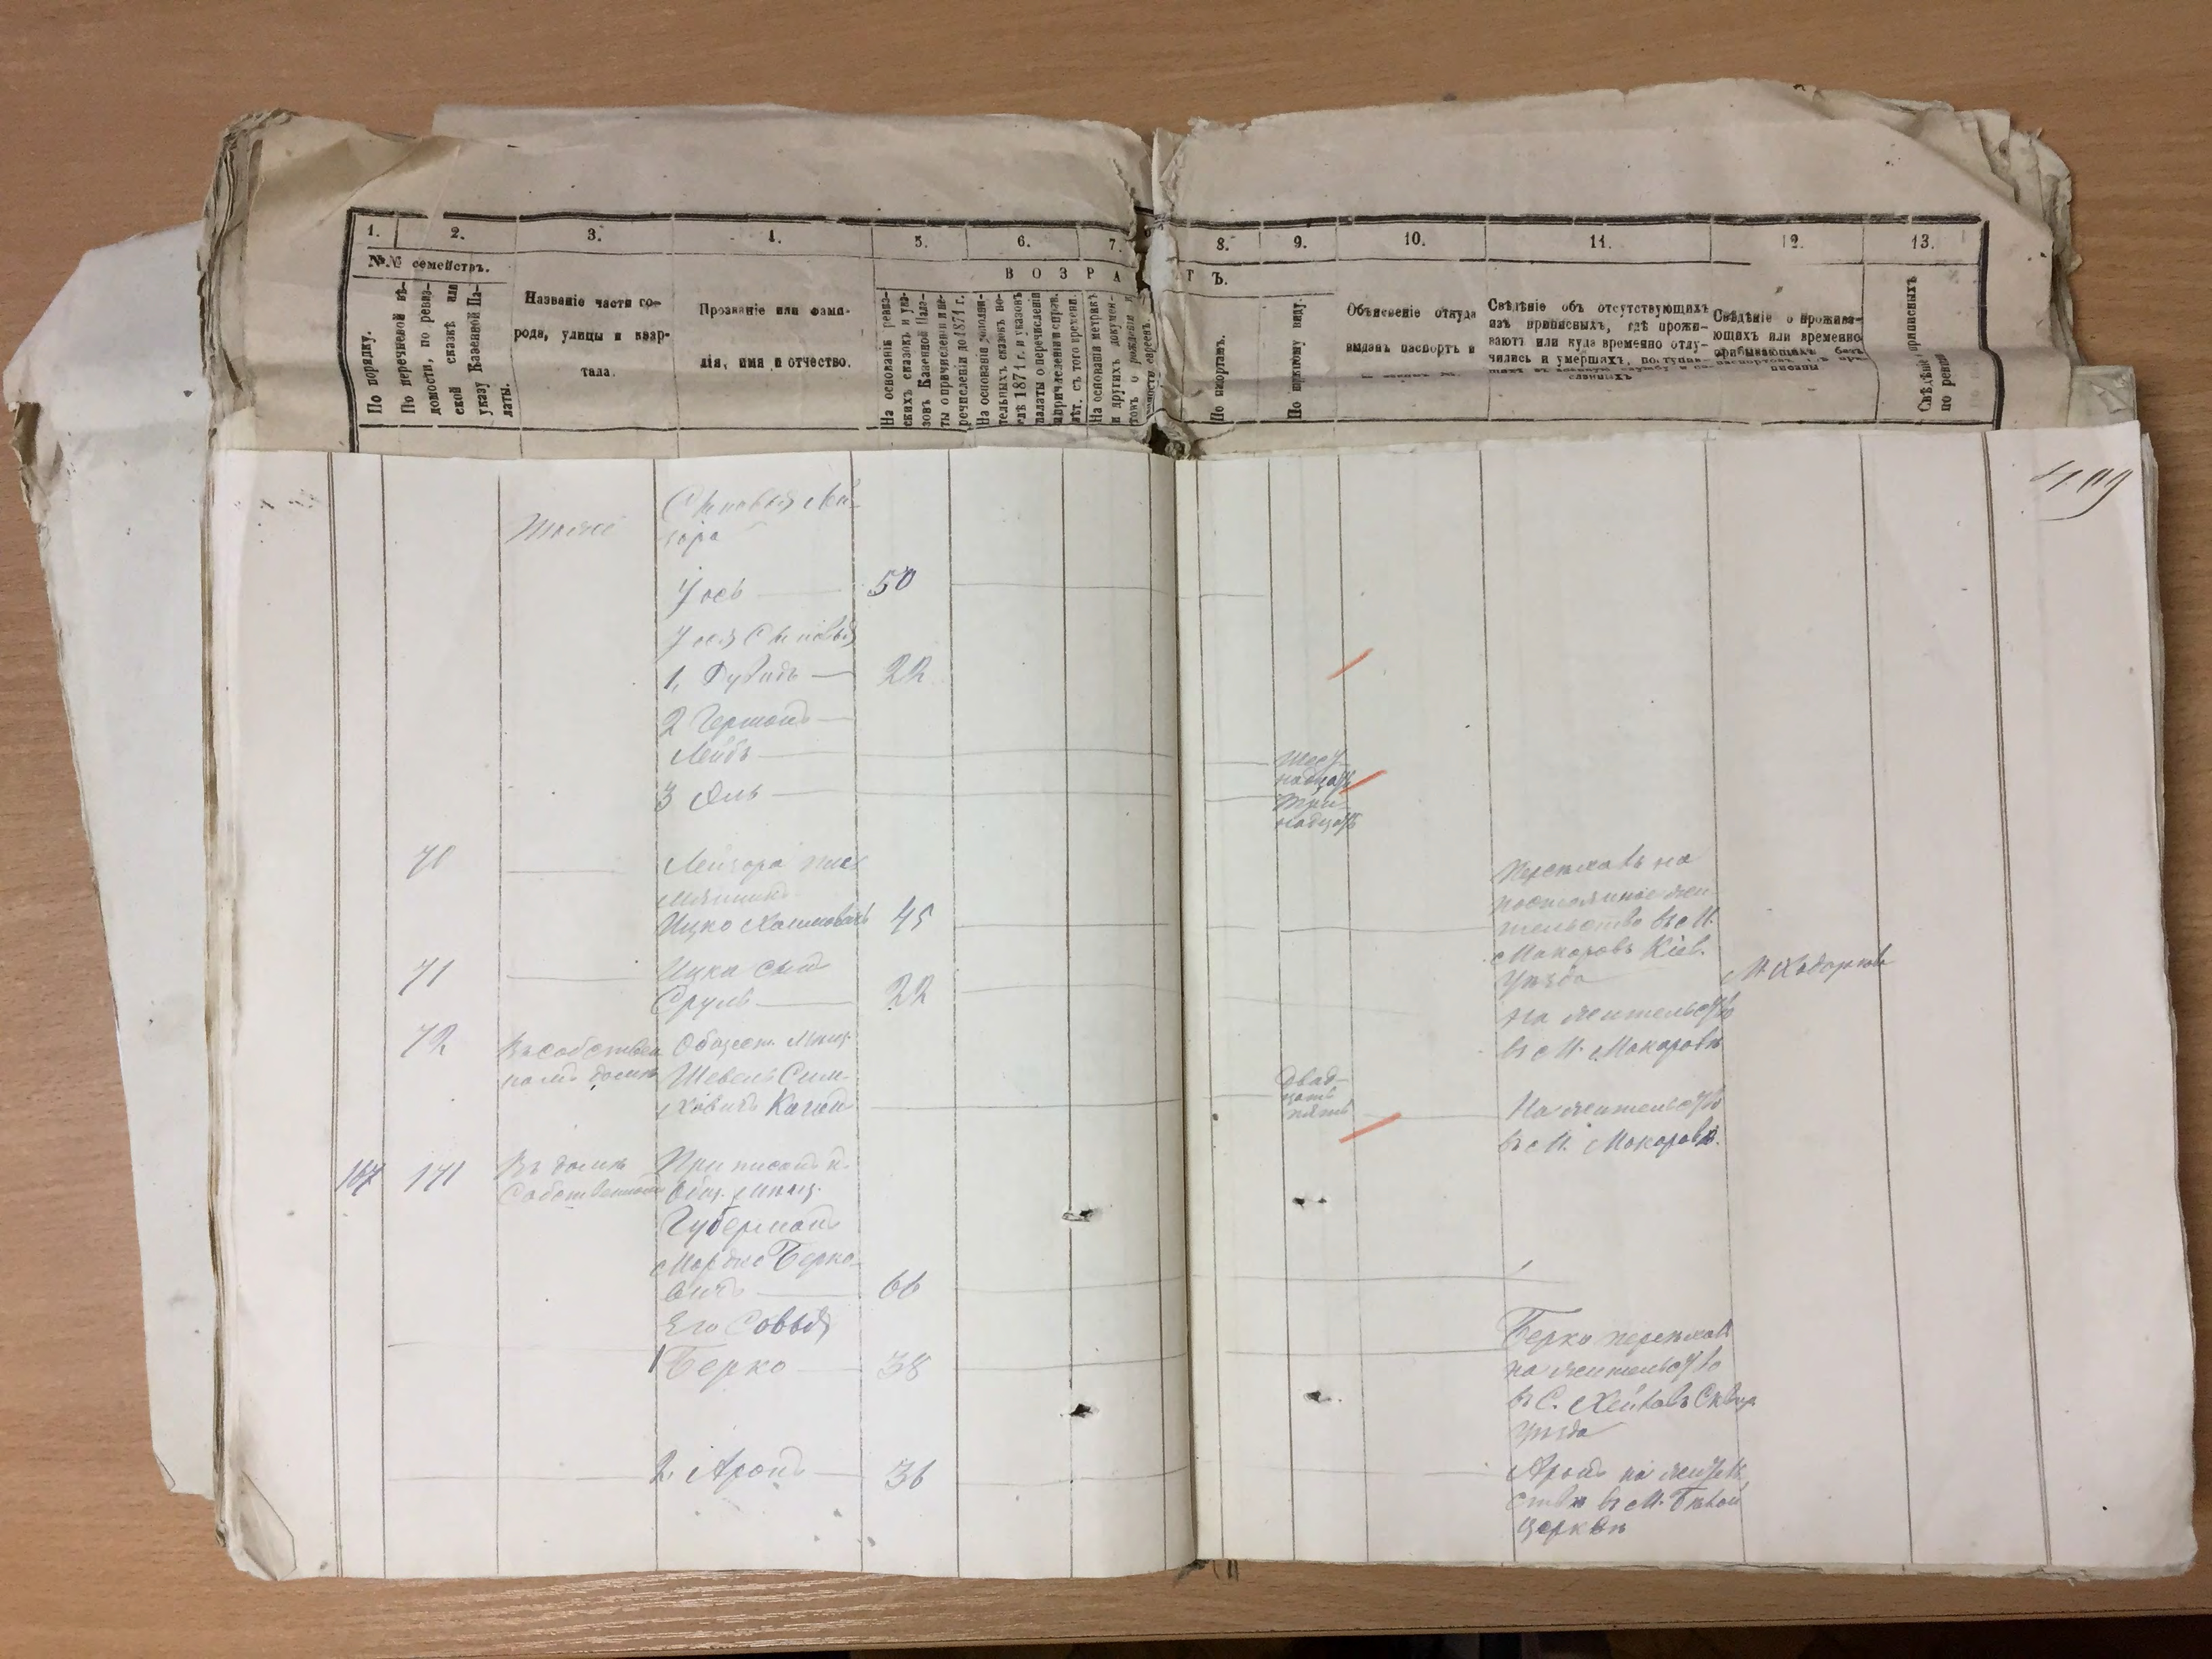 1.
2.
3.
4.
5.
6.
7.
8.
9.
10.
11.
12.
13.
№№ семействъ.
ВОЗРА
ТЪ.
По порядку.
По перечневой вѣ-
домости, по ревиз-
ской сказкѣ или
указу Казенной Па-
латы.
Названіе части го-
рода, улицы и квар-
тала.
Прозваніе или фами-
лія, имя и отчество.
На основаніи ревиз-
скихъ сказокъ и ука-
зовъ Казенной Пала-
ты о причисленіи и пе-
речисленіи до 1871 г.
На основаніи дополни-
тельныхъ сказокъ по-
слѣ 1871 г. и указовъ
палаты о перечисленіи
съ того времени.
На основаніи метрикъ
и другихъ докумен-
товъ о рожденіи
По наружному виду.
Объясненіе откуда
выданъ паспортъ и
Свѣдѣніе объ отсутствующихъ
изъ приписныхъ, гдѣ прожи-
ваютъ или куда временно отлу-
чились и умершихъ, поступив-
Свѣдѣніе о прожива-
ющихъ или временно
прибывающихъ безъ
писаны
приписныхъ
по ревиз
499
Сыновья Лей-
зора
Тоже
Іось
50
Іося Сыновья
1, Дувидъ
22
2 Гершонъ
Лейбъ
Шест-
надцать
3 Эль
Три-
надцать
70
Лейзора пле
мянникъ
Ицко Хаимовичъ
45
Переѣхавъ на
постоянное жи-
тельство въ М.
Макаровъ Кіев.
Уѣзда
71
Ицки сынъ
Сруль
22
М. Ходорковъ
На жительство
въ М. Макаровѣ
72
Въ собствен
номъ домѣ
Общест. Мѣщ.
Шевель Сим-
ховичъ Каганъ
Двад-
цать
пять
На жительство
въ М. Макаровѣ.
167
171
Въ домѣ
Собственномъ
Приписанъ к.
Общ. Мѣщ.
Губерманъ
Мордко Берко-
вичъ
66
Его С-овья
1 Берко
38
Берко переѣхавъ
на жительство
въ С. Сквир
Уѣзда
2. Аронъ
36
Аронъ на житель
ство въ М. Бѣлой
Церкви